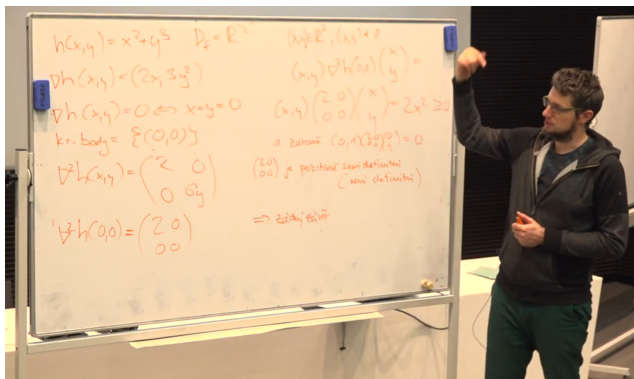 h(x,y) = x²+y³ D_f = ℝ²
∇h(x,y) = (2x, 3y²)
∇h(x,y) = 0 ⟺ x=y=0
kr. body = {(0,0)}
∇²h(x,y) = (2 0
0 6y)
∇²h(0,0) = (2 0
0 0)
(x,y) ∈ ℝ², (x,y) ≠ 0
(x,y) ∇²h(0,0) (x
y) =
(x,y) (2 0
0 0) (x
y) = 2x² ≥ 0
a zároveň (0,1) (2 0
0 0) (0
1) = 0
(2 0
0 0) je pozitivně semi definitní
(není definitní)
⟹ žádný závěr